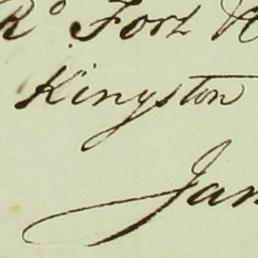 Rº Fort
Kingston
Jan